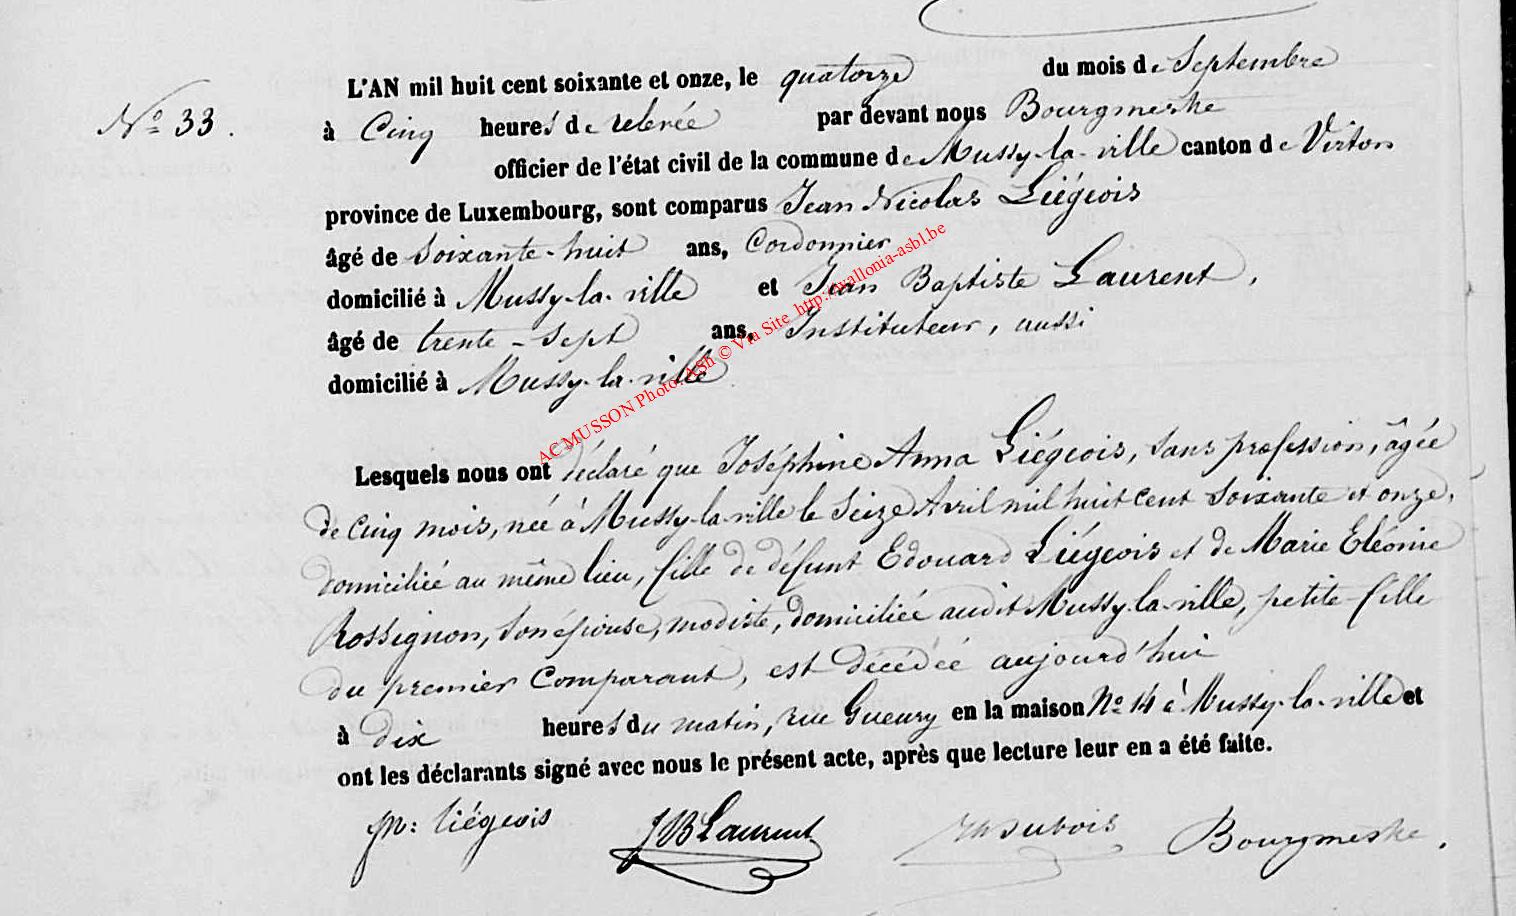 L'AN mil huit cent soixante et onze, le quatorze du mois de Septembre
N° 33.
à Cinq heures de relevée par devant nous Bourgmestre
officier de l'état civil de la commune de Mussy-la-ville canton de Virton
province de Luxembourg, sont comparus Jean Nicolas Liégeois
âgé de soixante-huit ans, Cordonnier
domicilié à Mussy-la-ville et Jean Baptiste Laurent,
âgé de trente-sept ans, Instituteur, aussi
domicilié à Mussy-la-ville
AC MUSSON Photo: ASh © Via Site http://wallonia-asbl.be
Lesquels nous ont déclaré que Joséphine Anna Liégeois, sans profession, âgée
de cinq mois, née à Mussy-la-ville le seize Avril mil huit cent soixante et onze,
domiciliée au même lieu, fille de défunt Edouard Liégeois et de Marie Eléonie
Rossignon, son épouse, modiste, domiciliée audit Mussy-la-ville, petite-fille
du premier Comparant, est décédée aujourd'hui
à dix heures du matin, rue Gueury en la maison N° 14 à Mussy-la-ville et
ont les déclarants signé avec nous le présent acte, après que lecture leur en a été faite.
Liégeois JB Laurent Dubois Bourgmestre.